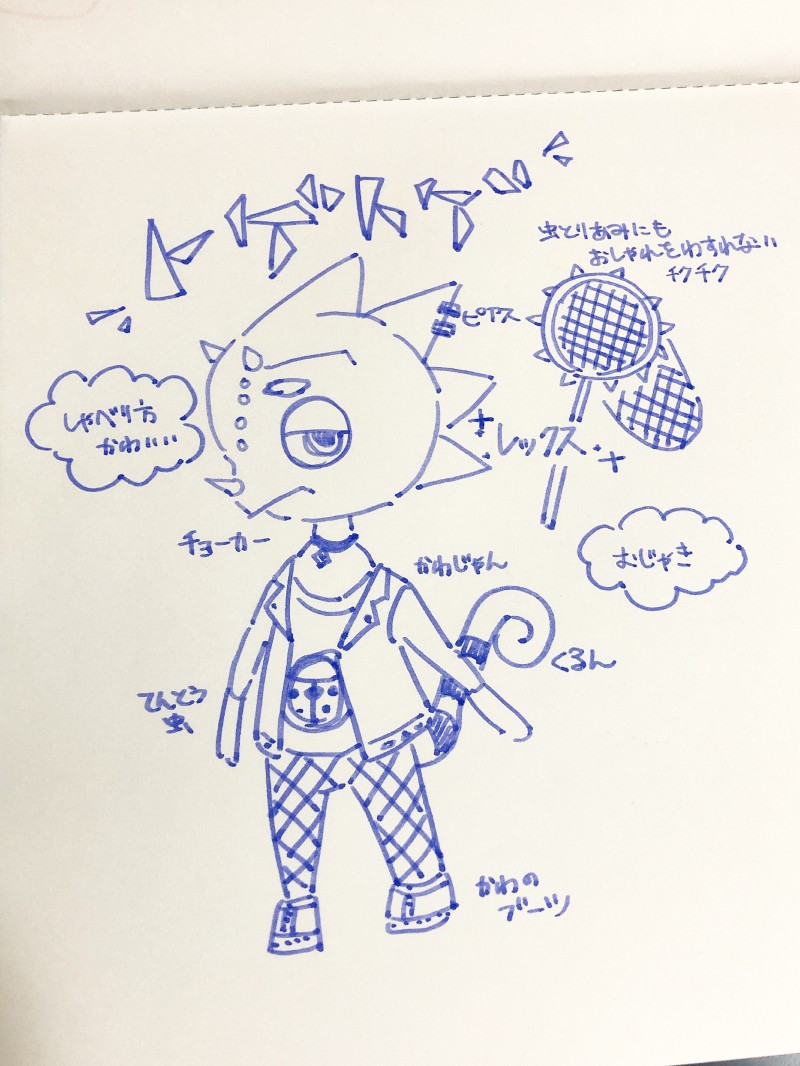 トゲトゲ
虫とりあみにも
おしゃれをわすれない
チクチク
ピアス
しゃべり方
かわいい
レックス
チョーカー
かわじゃん
むじゃき
くるん
てんとう
虫
かわの
ブーツ